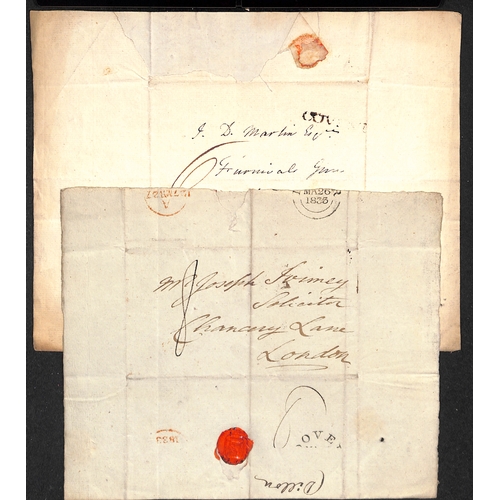 J. D. Martin Esqr
Furnivals Inn
MR 26
1838
Mr Joseph Ivimey
Solicitor
Chancery Lane
London
DOVE
1838
(Dillon